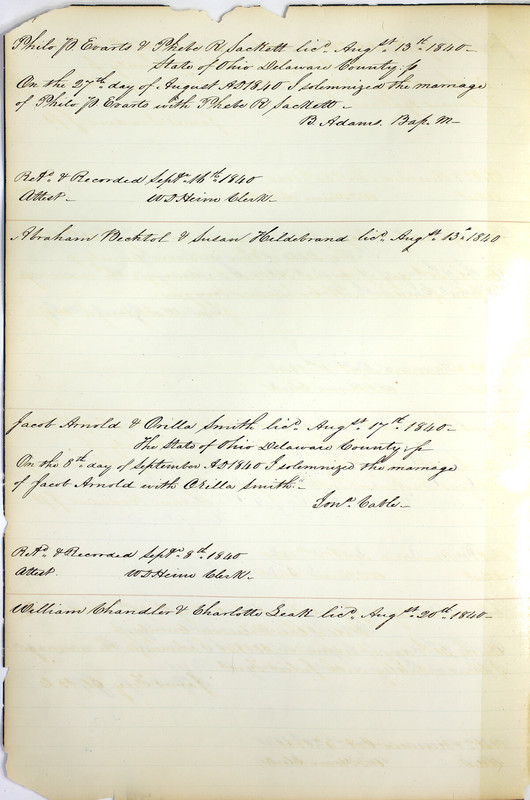 Philo D Evarts & Phebe R Sackett lic.ᵈ Augˢᵗ 13ᵗʰ 1840
State of Ohio Delaware County: ss
On the 27ᵗʰ day of August AD 1840 I solemnized the marriage
of Philo D Evarts with Phebe R Sackett
B. Adams. Bap. M
Retᵈ & Recorded Septʳ 16ᵗʰ 1840
Attest W D Heim Clerk
Abraham Bechtol & Susan Hildebrand licᵈ Augˢᵗ 13ᵗʰ 1840
Jacob Arnold & Orilla Smith licᵈ Augˢᵗ 17ᵗʰ 1840
The State of Ohio Delaware County ss
On the 8ᵗʰ day of September AD 1840 I solemnized the marriage
of Jacob Arnold with Orilla Smith
Jonᵃ Cable
Retᵈ & Recorded Septʳ 8ᵗʰ 1840
Attest. W D Heim Clerk
William Chandler & Charlotte Leak licᵈ Augˢᵗ 20ᵗʰ 1840